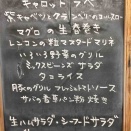 キャロットラペ
紫キャベツとクミンシードのコールスロー
マグロの生春巻き
レンコンの粒マスタードマリネ
いろいろ野菜のグリル
ミックスビーンズサラダ
タコライス
豚ロースのグリル フレッシュトマトソース
サバの香草パン粉焼き
生ハムサラダ・シーフードサラダ